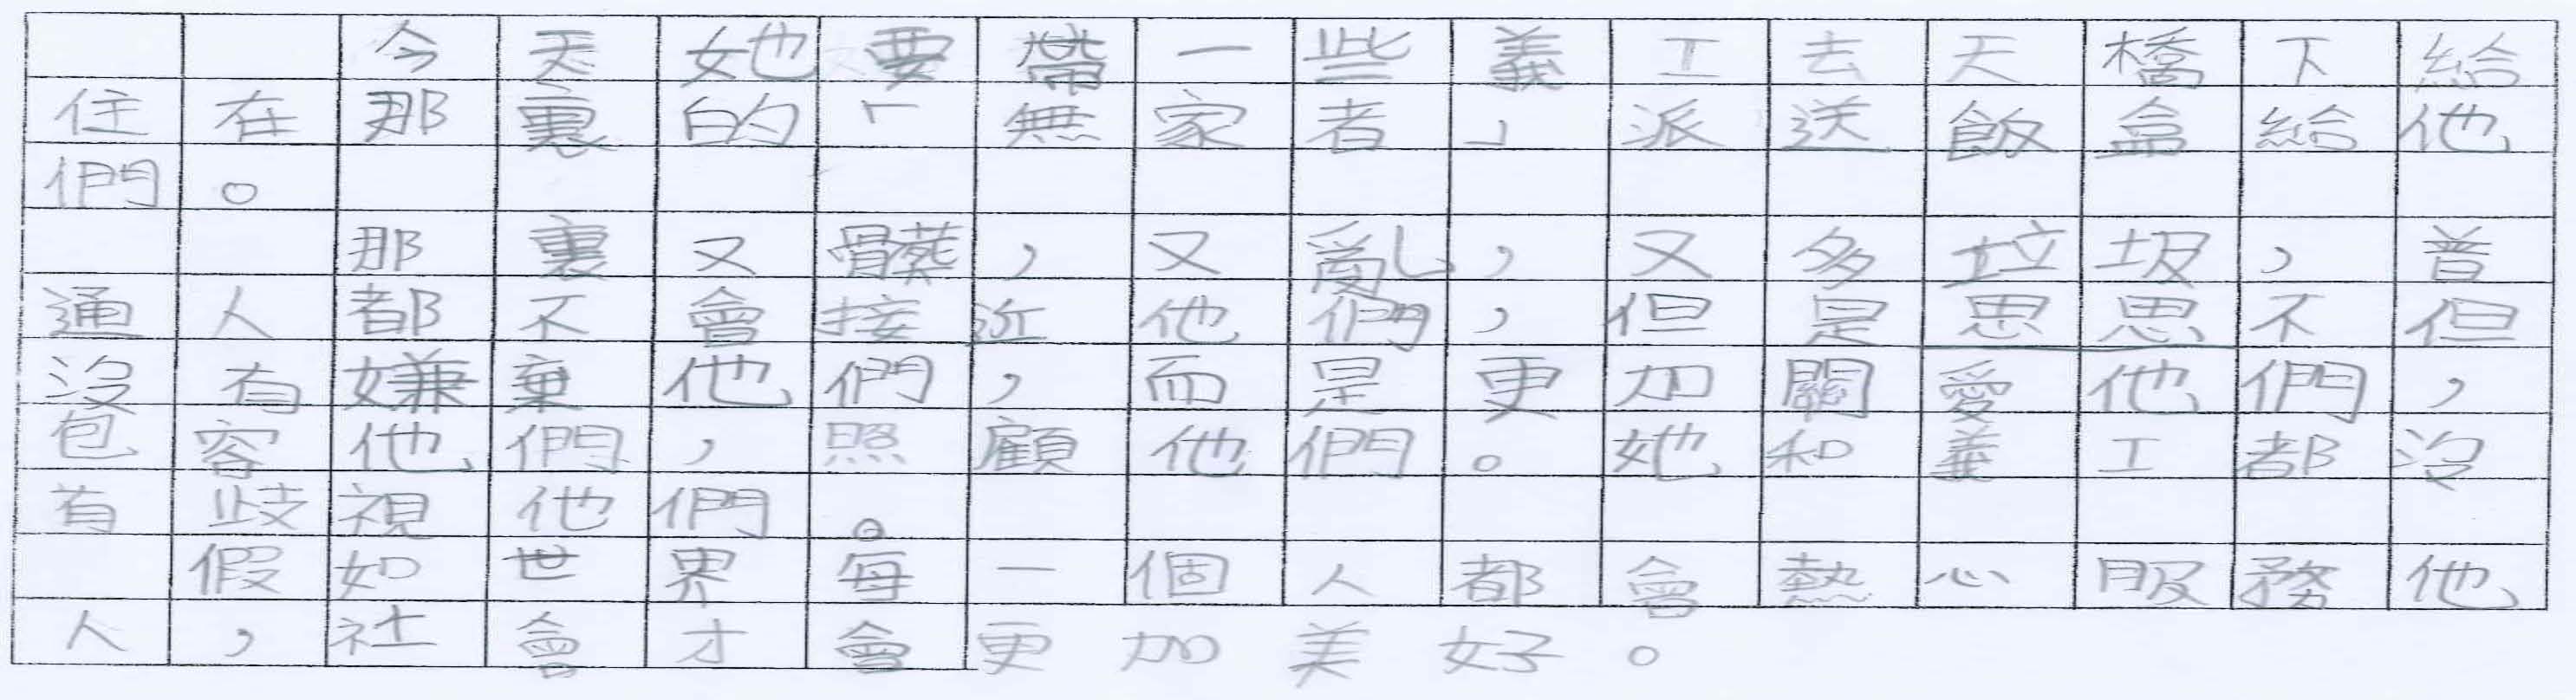 今天她要帶一些義工去天橋下給
住在那裏的「無家者」派送飯盒給他
們。
那裏又髒，又亂，又多垃圾，普
通人都不會接近他們，但是思思不但
沒有嫌棄他們，而是更加關愛他們，
包容他們，照顧他們。她和義工都沒
有歧視他們。
假如世界每一個人都會熱心服務他
人，社會才會更加美好。